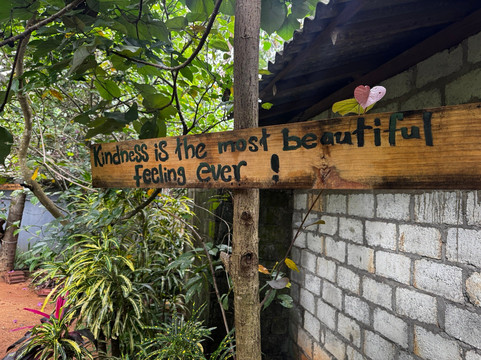 Kindness is the most beautiful
feeling ever !